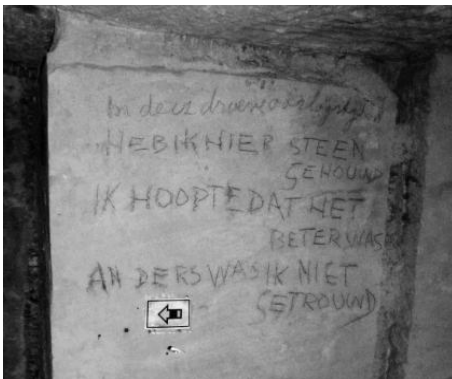 In deez droeve oorlogstijd
HEB IK HIER STEEN
GEHOUWD
IK HOOPTE DAT HET
BETER WAS
ANDERS WAS IK NIET
GETROUWD